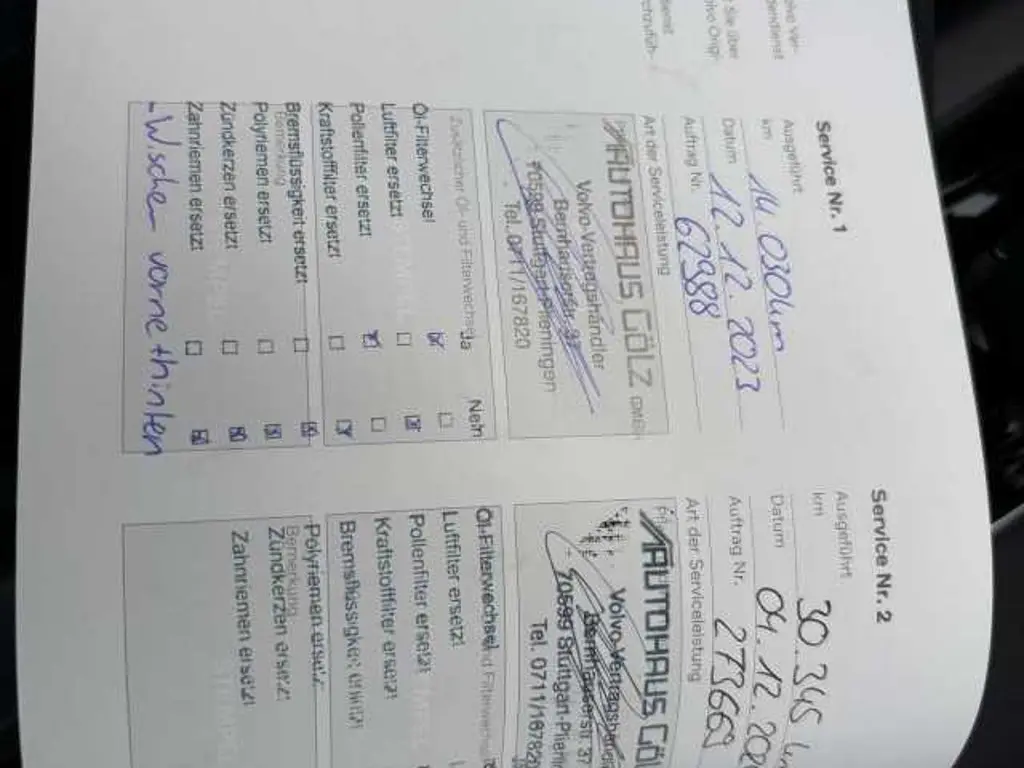 Service Nr. 1
Ausgeführt
km 14.030km
Datum 12.12.2023
Auftrag Nr. 62988
Art der Serviceleistung
AUTOHAUS GÖLZ GMBH
Volvo-Vertragshändler
Bernhauserstr. 37
70599 Stuttgart-Plieningen
Tel. 0711/167820
Zusätzlicher Öl- und Filterwechsel
Ja Nein
Öl-Filterwechsel
Luftfilter ersetzt
Pollenfilter ersetzt
Kraftstofffilter ersetzt
Bremsflüssigkeit ersetzt
Bemerkung
Polyriemen ersetzt
Zündkerzen ersetzt
Zahnriemen ersetzt
- Wischer vorne + hinten
Service Nr. 2
Ausgeführt
km 30.345
Datum 04.12.
Auftrag Nr. 273669
Art der Serviceleistung
AUTOHAUS GÖL
Volvo-Vertragshändle
Bernhauserstr. 37
70599 Stuttgart-Plienin
Tel. 0711/16782
Öl-Filterwechsel
Luftfilter ersetzt
Pollenfilter ersetzt
Kraftstofffilter ersetzt
Bremsflüssigkeit ersetzt
Polyriemen ersetzt
Bemerkung
Zündkerzen ersetzt
Zahnriemen ersetzt